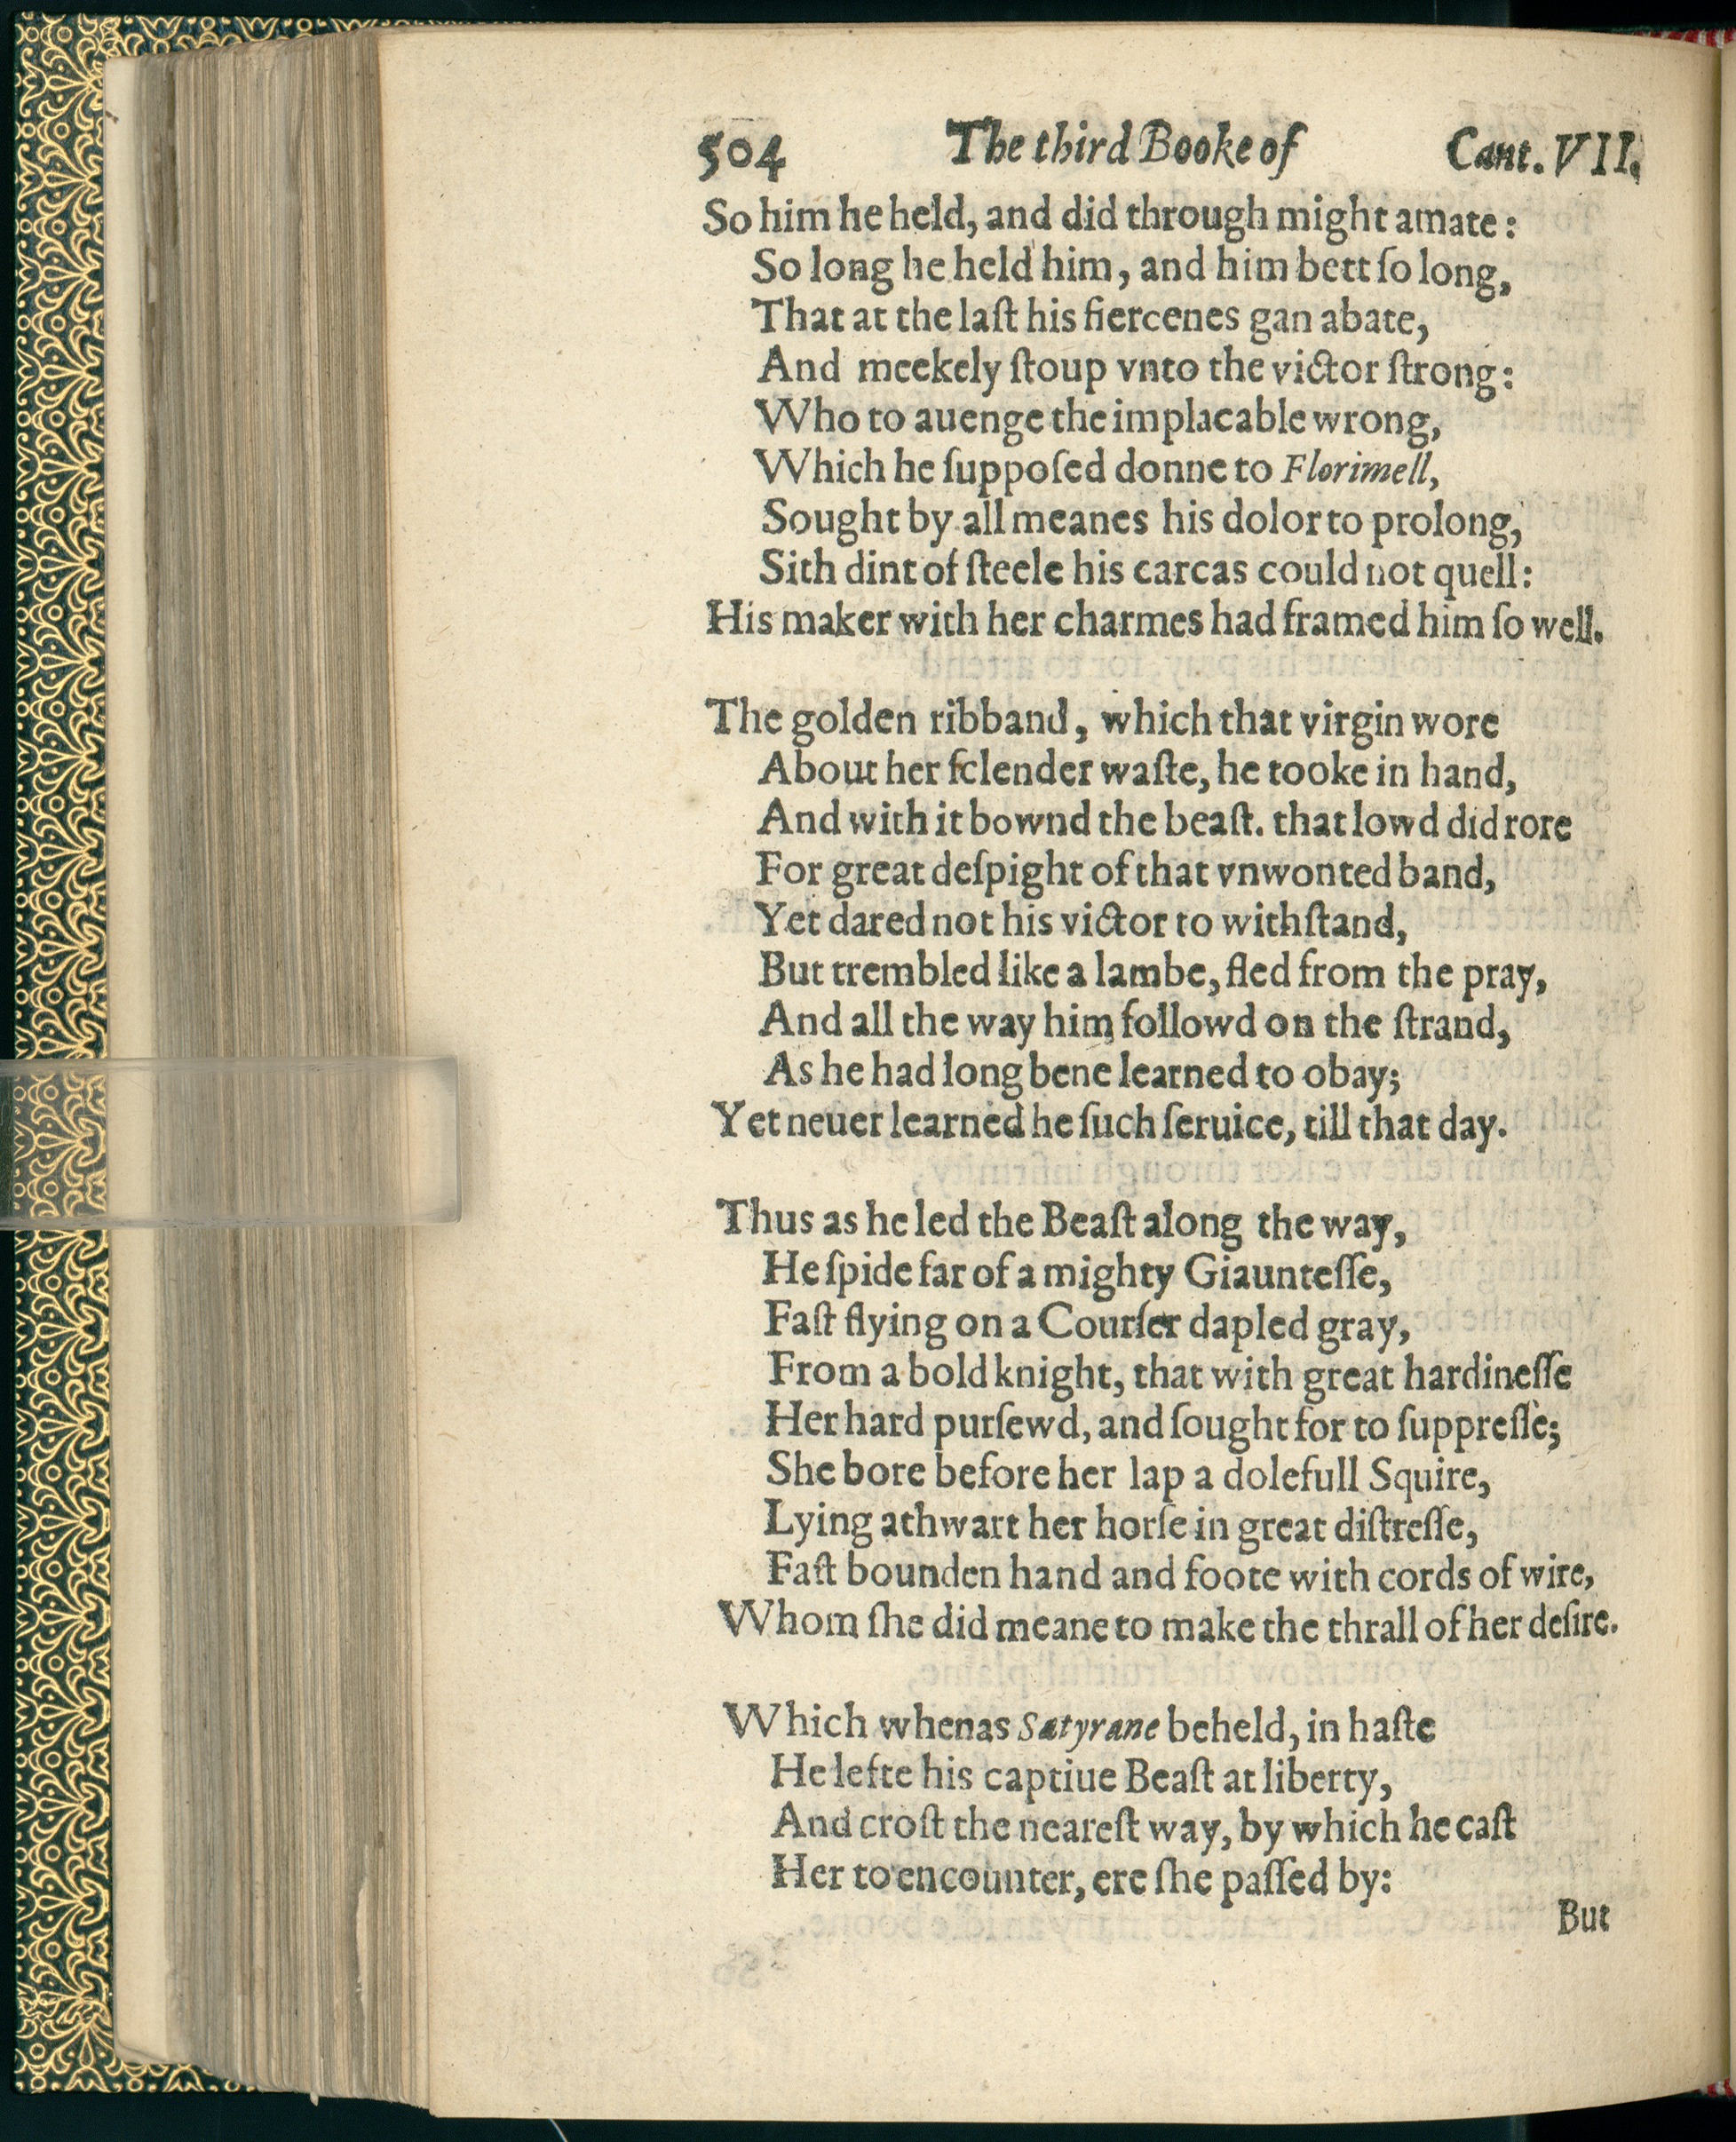 504 The third Booke of Cant. VII.
So him he held, and did through might amate:
So long he held him, and him bett ſo long,
That at the laſt his fiercenes gan abate,
And meekely ſtoup vnto the victor ſtrong:
Who to auenge the implacable wrong,
Which he ſuppoſed donne to Florimell,
Sought by all meanes his dolor to prolong,
Sith dint of ſteele his carcas could not quell:
His maker with her charmes had framed him ſo well.
The golden ribband, which that virgin wore
About her ſclender waſte, he tooke in hand,
And with it bownd the beaſt. that lowd did rore
For great deſpight of that vnwonted band,
Yet dared not his victor to withſtand,
But trembled like a lambe, fled from the pray,
And all the way him followd on the ſtrand,
As he had long bene learned to obay;
Yet neuer learned he ſuch ſeruice, till that day.
Thus as he led the Beaſt along the way,
He ſpide far of a mighty Giaunteſſe,
Faſt flying on a Courſer dapled gray,
From a bold knight, that with great hardineſſe
Her hard purſewd, and ſought for to ſuppreſſe;
She bore before her lap a dolefull Squire,
Lying athwart her horſe in great diſtreſſe,
Faſt bounden hand and foote with cords of wire,
Whom ſhe did meane to make the thrall of her deſire.
Which whenas Satyrane beheld, in haſte
He lefte his captiue Beaſt at liberty,
And croſt the neareſt way, by which he caſt
Her to encounter, ere ſhe paſſed by:
But